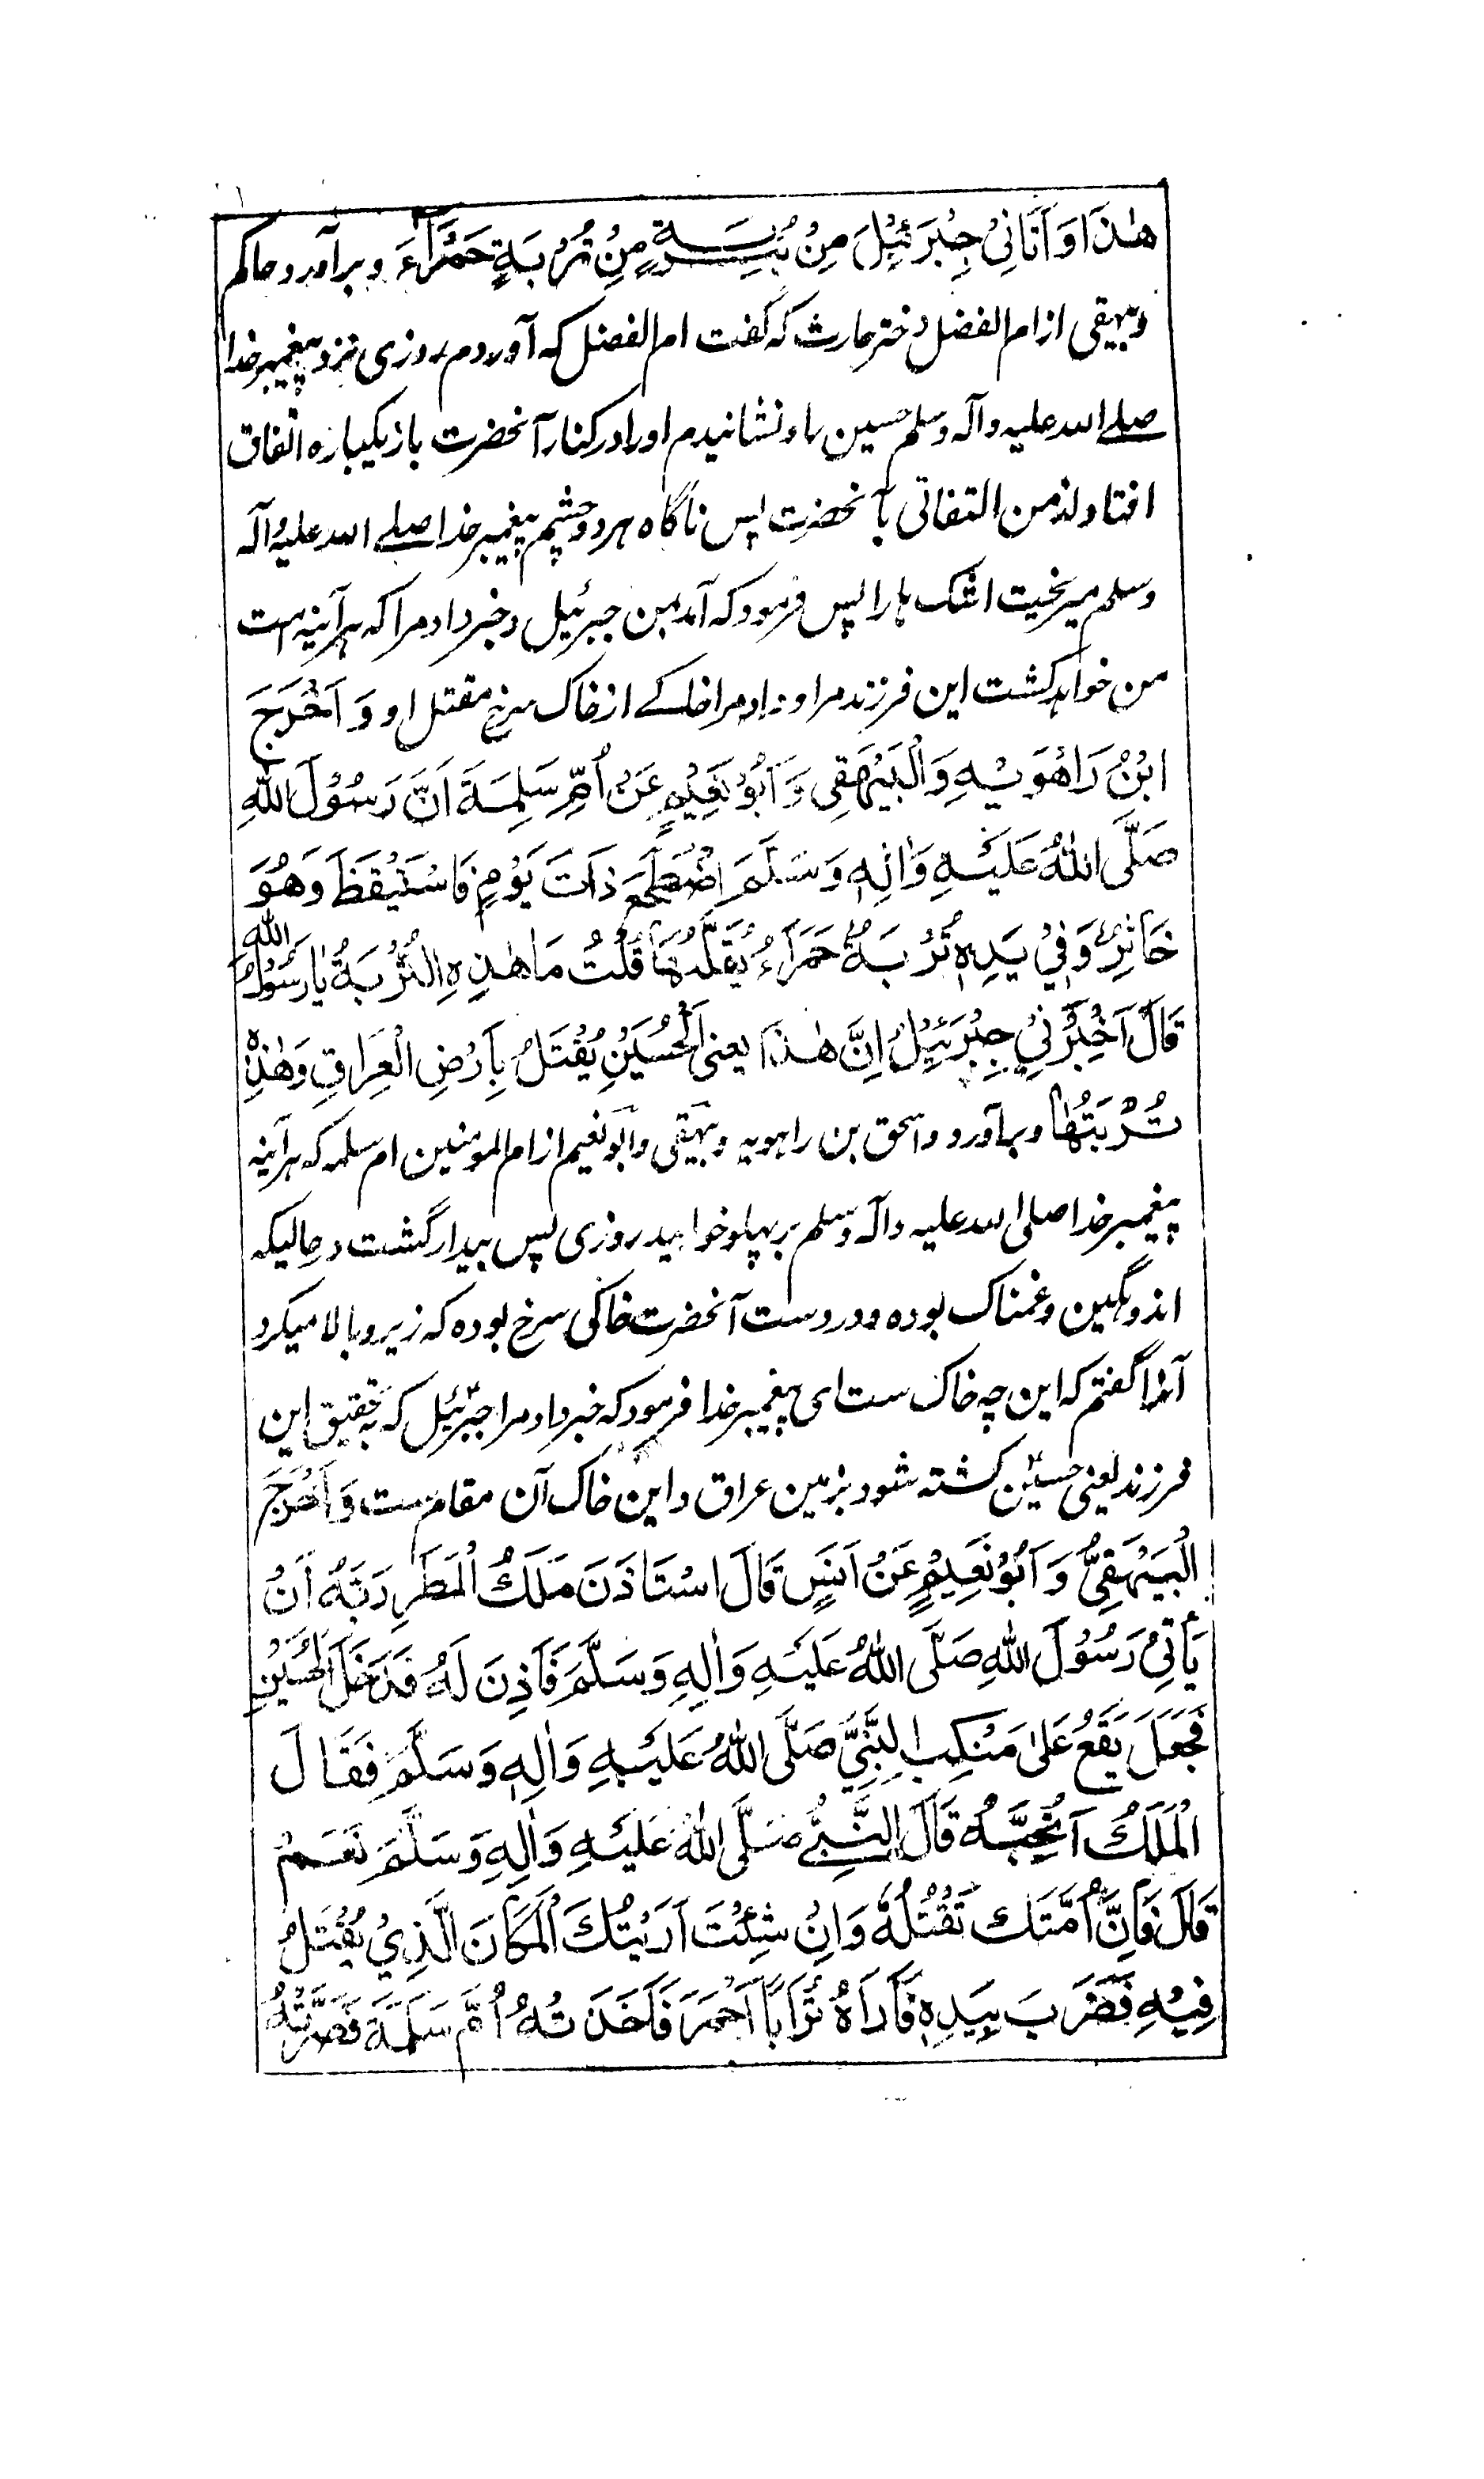 هٰذَا وَ اَتَانِیْ جِبْرَئِیْلُ مِنْ تُرْبَةٍ مِنْ تُرْبَةٍ حَمْرَآءَ و برآورد حاکم
و بیهقی از ام الفضل دختر حارث که گفت ام الفضل که آوردم روزی نزد پیغمبر خدا
صلے اللہ علیہ وآلہ وسلم حسین را و نشانیدم او را در کنار آنحضرت باز یکباره اتفاق
افتاد از من التفاتی بآنحضرت پس ناگاه هر دو چشم پیغمبر خدا صلے اللہ علیہ وآلہ
وسلم میریخت اشک ها را پس فرمود که آمد بمن جبرئیل و خبر داد مرا که هر آئینه امت
من خواهد کشت این فرزند مرا و داد مرا خاکے از خاک سرخ مقتل او وَ اَخْرَجَ
ابْنُ رَاهْوَیْهِ وَالْبَیْهَقِی وَ اَبُوْ نَعِیْمٍ عَنْ اُمِّ سَلِمَةَ اَنَّ رَسُوْلَ اللّٰهِ
صَلَّی اللّٰهُ عَلَیْهِ وَاٰلِهٖ وَسَلَّمَ اضْطَجَعَ ذَاتَ یَوْمٍ فَاسْتَیْقَظَ وَهُوَ
خَاثِرٌ وَفِیْ یَدِهٖ تُرْبَةٌ حَمْرَآءُ یُقَلِّبُهَا قُلْتُ مَا هٰذِهِ التُّرْبَةُ یَا رَسُوْلَ اللّٰهِ
قَالَ اَخْبَرَنِیْ جِبْرَئِیْلُ اِنَّ هٰذَا یعنی الْحُسَیْنِ یُقْتَلُ بِاَرْضِ الْعِرَاقِ وَهٰذِهٖ
تُرْبَتُهَا و برآورد و اسحق بن راهویه و بیهقی و ابو نعیم از ام المومنین ام سلمه که هر آئینه
پیغمبر خدا صلی اللہ علیہ وآلہ وسلم بر پهلو خوابید روزی پس بیدار گشت در حالیکه
اندوهگین و غمناک بوده و در دست آنحضرت خاکی سرخ بوده که زیر و بالا میکرد
آنرا گفتم که این چه خاک ست ای پیغمبر خدا فرمود که خبر داد مرا جبرئیل که به تحقیق این
فرزند یعنی حسینؑ کشته شود بزمین عراق و این خاک آن مقام ست وَ اَخْرَجَ
الْبَیْهَقِیُّ وَ اَبُوْ نَعِیْمٍ عَنْ اَنَسٍ قَالَ اسْتَاذَنَ مَلَكُ الْمَطَرِ رَبَّهٗ اَنْ
یَاْتِیَ رَسُوْلَ اللّٰهِ صَلَّی اللّٰهُ عَلَیْهِ وَاٰلِهٖ وَسَلَّمَ فَاَذِنَ لَهٗ فَدَخَلَ الْحُسَیْنِ
فَجَعَلَ یَقَعُ عَلٰی مَنْكِبِ النَّبِیِّ صَلَّی اللّٰهُ عَلَیْهِ وَاٰلِهٖ وَسَلَّمَ فَقَالَ
الْمَلَكُ اَتُحِبُّهٗ قَالَ النَّبِیُّ صَلَّی اللّٰهُ عَلَیْهِ وَاٰلِهٖ وَسَلَّمَ نَعَمْ
قَالَ فَاِنَّ اُمَّتَكَ تَقْتُلُهٗ وَاِنْ شِئْتَ اَرَیْتُكَ الْمَكَانَ الَّذِیْ یُقْتَلُ
فِیْهِ فَضَرَبَ بِیَدِهٖ فَاَرَاهُ تُرَابًا اَحْمَرَ فَاَخَذَتْهُ اُمُّ سَلَمَةَ فَصَرَّتْهُ